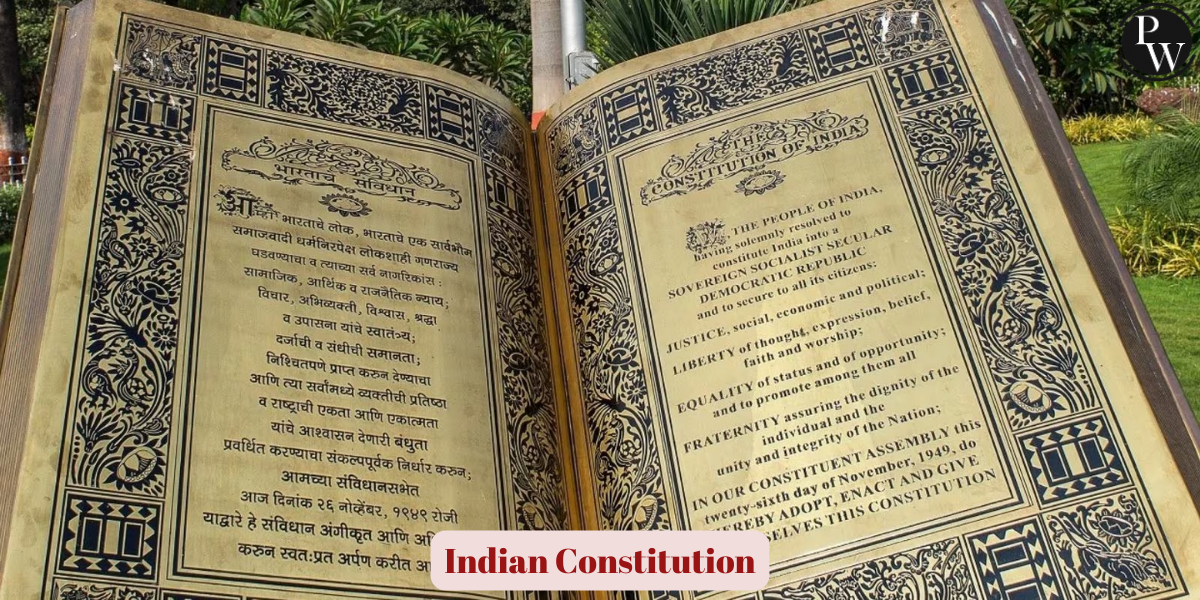 भारताचे संविधान
आम्ही भारताचे लोक, भारताचे एक सार्वभौम
समाजवादी धर्मनिरपेक्ष लोकशाही गणराज्य
घडवण्याचा व त्याच्या सर्व नागरिकांस :
सामाजिक, आर्थिक व राजनैतिक न्याय;
विचार, अभिव्यक्ती, विश्वास, श्रद्धा
व उपासना यांचे स्वातंत्र्य;
दर्जाची व संधीची समानता;
निश्चितपणे प्राप्त करुन देण्याचा
आणि त्या सर्वांमध्ये व्यक्तीची प्रतिष्ठा
व राष्ट्राची एकता आणि एकात्मता
यांचे आश्वासन देणारी बंधुता
प्रवर्धित करण्याचा संकल्पपूर्वक निर्धार करुन;
आमच्या संविधानसभेत
आज दिनांक २६ नोव्हेंबर, १९४९ रोजी
याद्वारे हे संविधान अंगीकृत आणि
करुन स्वतःप्रत अर्पण करीत
THE
CONSTITUTION OF INDIA
THE PEOPLE OF INDIA,
having solemnly resolved to
constitute India into a
SOVEREIGN SOCIALIST SECULAR
DEMOCRATIC REPUBLIC
and to secure to all its citizens:
JUSTICE, social, economic and political;
LIBERTY of thought, expression, belief,
faith and worship;
EQUALITY of status and of opportunity;
and to promote among them all
FRATERNITY assuring the dignity of the
individual and the
unity and integrity of the Nation;
IN OUR CONSTITUENT ASSEMBLY this
twenty-sixth day of November, 1949, do
ADOPT, ENACT AND GIVE
THIS CONSTITUTION
Indian Constitution
P
W